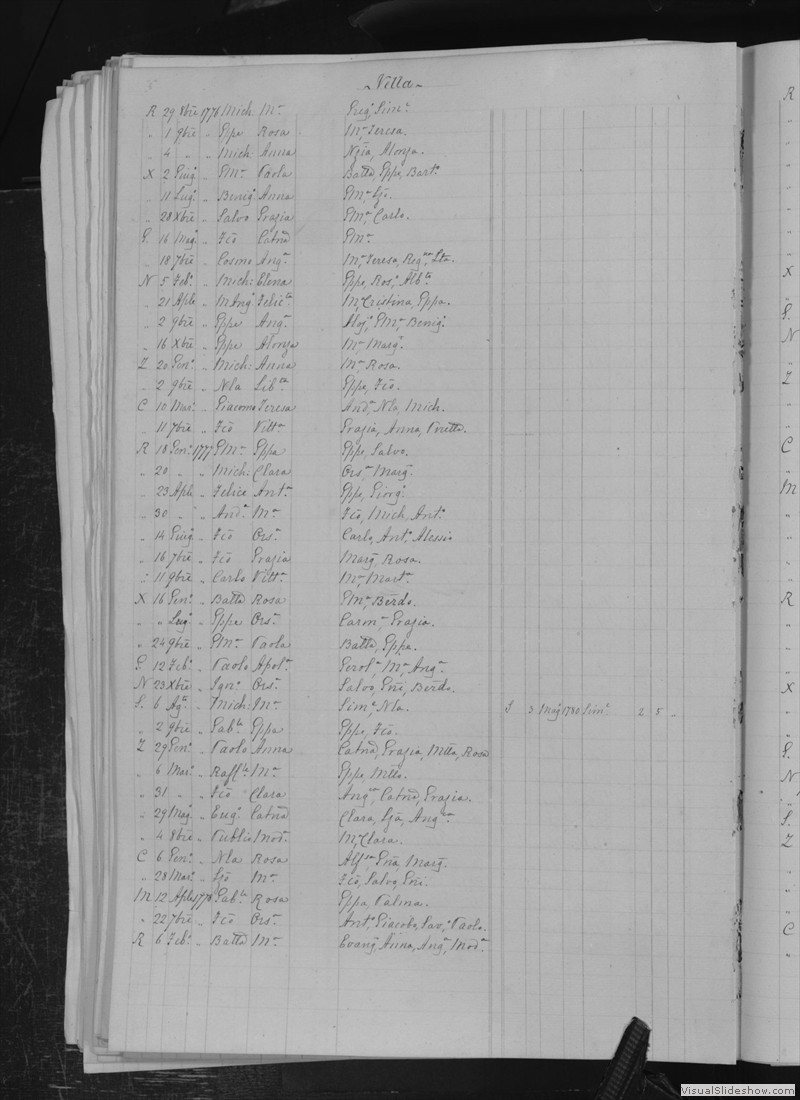 ~Villa~
R 29 8bre 1776 Mich. Mª Greg.º Simª
„ 1 9bre „ Gppe Rosa Mª Teresa.
„ 4 „ „ Mich: Anna Ngia, Alonza.
X 2 Giugº „ GMª Paola Batta, Gppe, Bartº
„ 11 Lugº „ Benigº Anna GMª, Gjo.
„ 28 Xbre „ Salvo Grazia GMª Carlo.
G. 16 Magº „ Fco Catnd GMª
„ 18 7bre „ Cosmo Angª Mª Teresa, Regª
N 5 Febº „ Mich: Elena Gppe, Rosº, Albta
„ 21 Aple „ MAngº Felicta Mª Cristina, Gppa.
„ 2 9bre „ Gppe Angª Aloj.º GMª Benigº
„ 16 Xbre „ Gppe Alonza Mª Margª
Z 20 Genº „ Mich: Anna Mª Rosa.
„ 2 9bre „ Nla Libta Gppe, Fco.
C 10 Marº „ Giacomo Teresa Andª Nla, Mich.
„ 11 7bre „ Fco Vittª Grazia, Anna,
R 18 Genº 1777 GMª Gppa Gppe, Salvo.
„ 20 „ „ Mich: Clara Orsª Margª
„ 23 Aple „ Felice Antª Gppe, Giorgº
„ 30 „ „ Andª Mª Fco, Mich, Antº
„ 14 Giugº „ Fco Orsª Carlo, Antº, Alessio
„ 16 7bre „ Fco Grazia Margª Rosa.
„ 11 9bre „ Carlo Vittª Mª Martª
X 16 Genº „ Batta Rosa GMª Berdo.
„ „ Lugº „ Gppe Orsª Carmª Grazia.
„ 24 9bre „ GMª Paola Batta, Gppe.
G 12 Febº „ Paolo Apolª Gerolª Mª Angª
N 23 Xbre „ Ignº Orsª Salvo, Gne, Berdo.
S. 6 Agto „ Mich: Mª Simª Nla. S 3 Magº 1780 Simª 2 5 „
„ 2 9bre „ Gabla Gppa Gppe, Fco.
Z 29 Genº „ Paolo Anna Catnd, Grazia, Mtta, Rosa
„ 6 Marº „ Raffle Mª Gppe, Mtto.
„ 31 „ „ Fco Clara Angca Catnd, Grazia.
„ 29 Magº „ Eugº Catnd Clara, Gja, Angca
„ 4 8bre „ Publio Modª Mª Clara.
C 6 Genº „ Nla Rosa Gna, Margª
„ 28 Marº „ Gjo Mª Fco, Salvo, Gne.
M 12 Aple 1778 Gabla Rosa Gppa, Palma.
„ 22 7bre „ Fco Orsª Antº, Giacobº, Savº Paolo.
R 6 Febº „ Batta Mª Evangª Anna, Angª, Modª
R
X
G.
N
Z
C
M
R
X
G.
N
S.
Z
C
VisualSlideshow.com